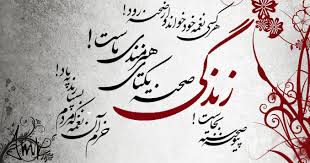 زندگی صحنه یکتای هنرمندی ماست!
هر کسی نغمه خود خواند و از صحنه رود!
صحنه پیوسته بجاست!
خرم آن نغمه که مردم بسپارند به یاد!